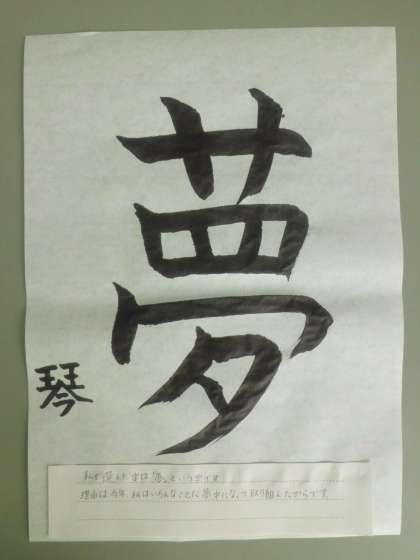 夢
琴
私が選んだ字は「夢」という字です
理由は今年、私はいろんなことに夢中になって取り組んだからです